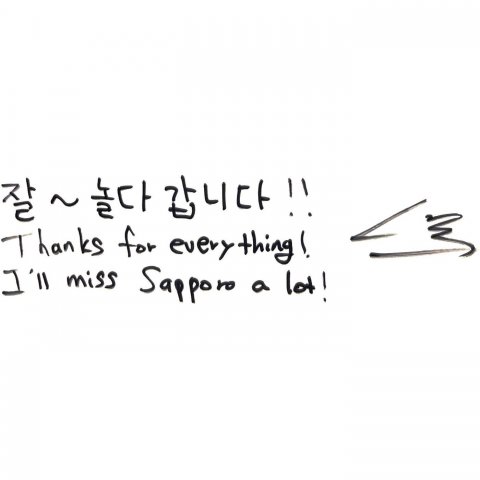 잘~놀다 갑니다!!
Thanks for everything!
I'll miss Sapporo a lot!